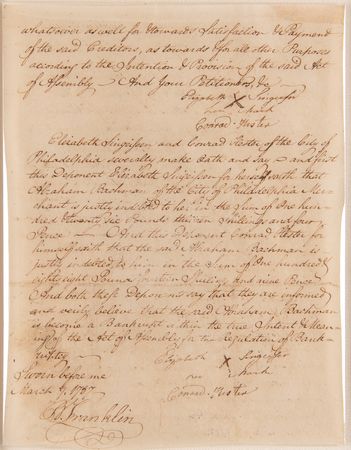 whatsoever as well for & towards Satisfaction & Payment
of the said Creditors, as towards & for all other Purposes
according to the Intention & Provision of the said Act
of Assembly And Your Petitioners &c
Elizabeth X Singeisen
Mark
Conrad Hester
Elizabeth Singeisen and Conrad Hester of the City of
Philadelphia severally make Oath and say and first
this Deponent Elizabeth Singeisen for herself saith that
Abraham Bachman of the City of Philadelphia Mer
chant is justly indebted to her in the Sum of One hun
dred & twenty five Pounds thirteen Shillings and four
Pence And this Deponent Conrad Hester for
himself saith that the said Abraham Bachman is
justly indebted to him in the Sum of One hundred &
eighty eight Pounds fourteen Shillings and nine Pence
And both these Deponents say that they are informed
and verily believe that the said Abraham Bachman
is become a Bankrupt within the true Intent & Mean
ing of the Act of Assembly for the Regulation of Bank
ruptcy
Elizabeth X Singeisen
Mark
Conrad Hester
Sworn before me
March 7, 1787
B. Franklin